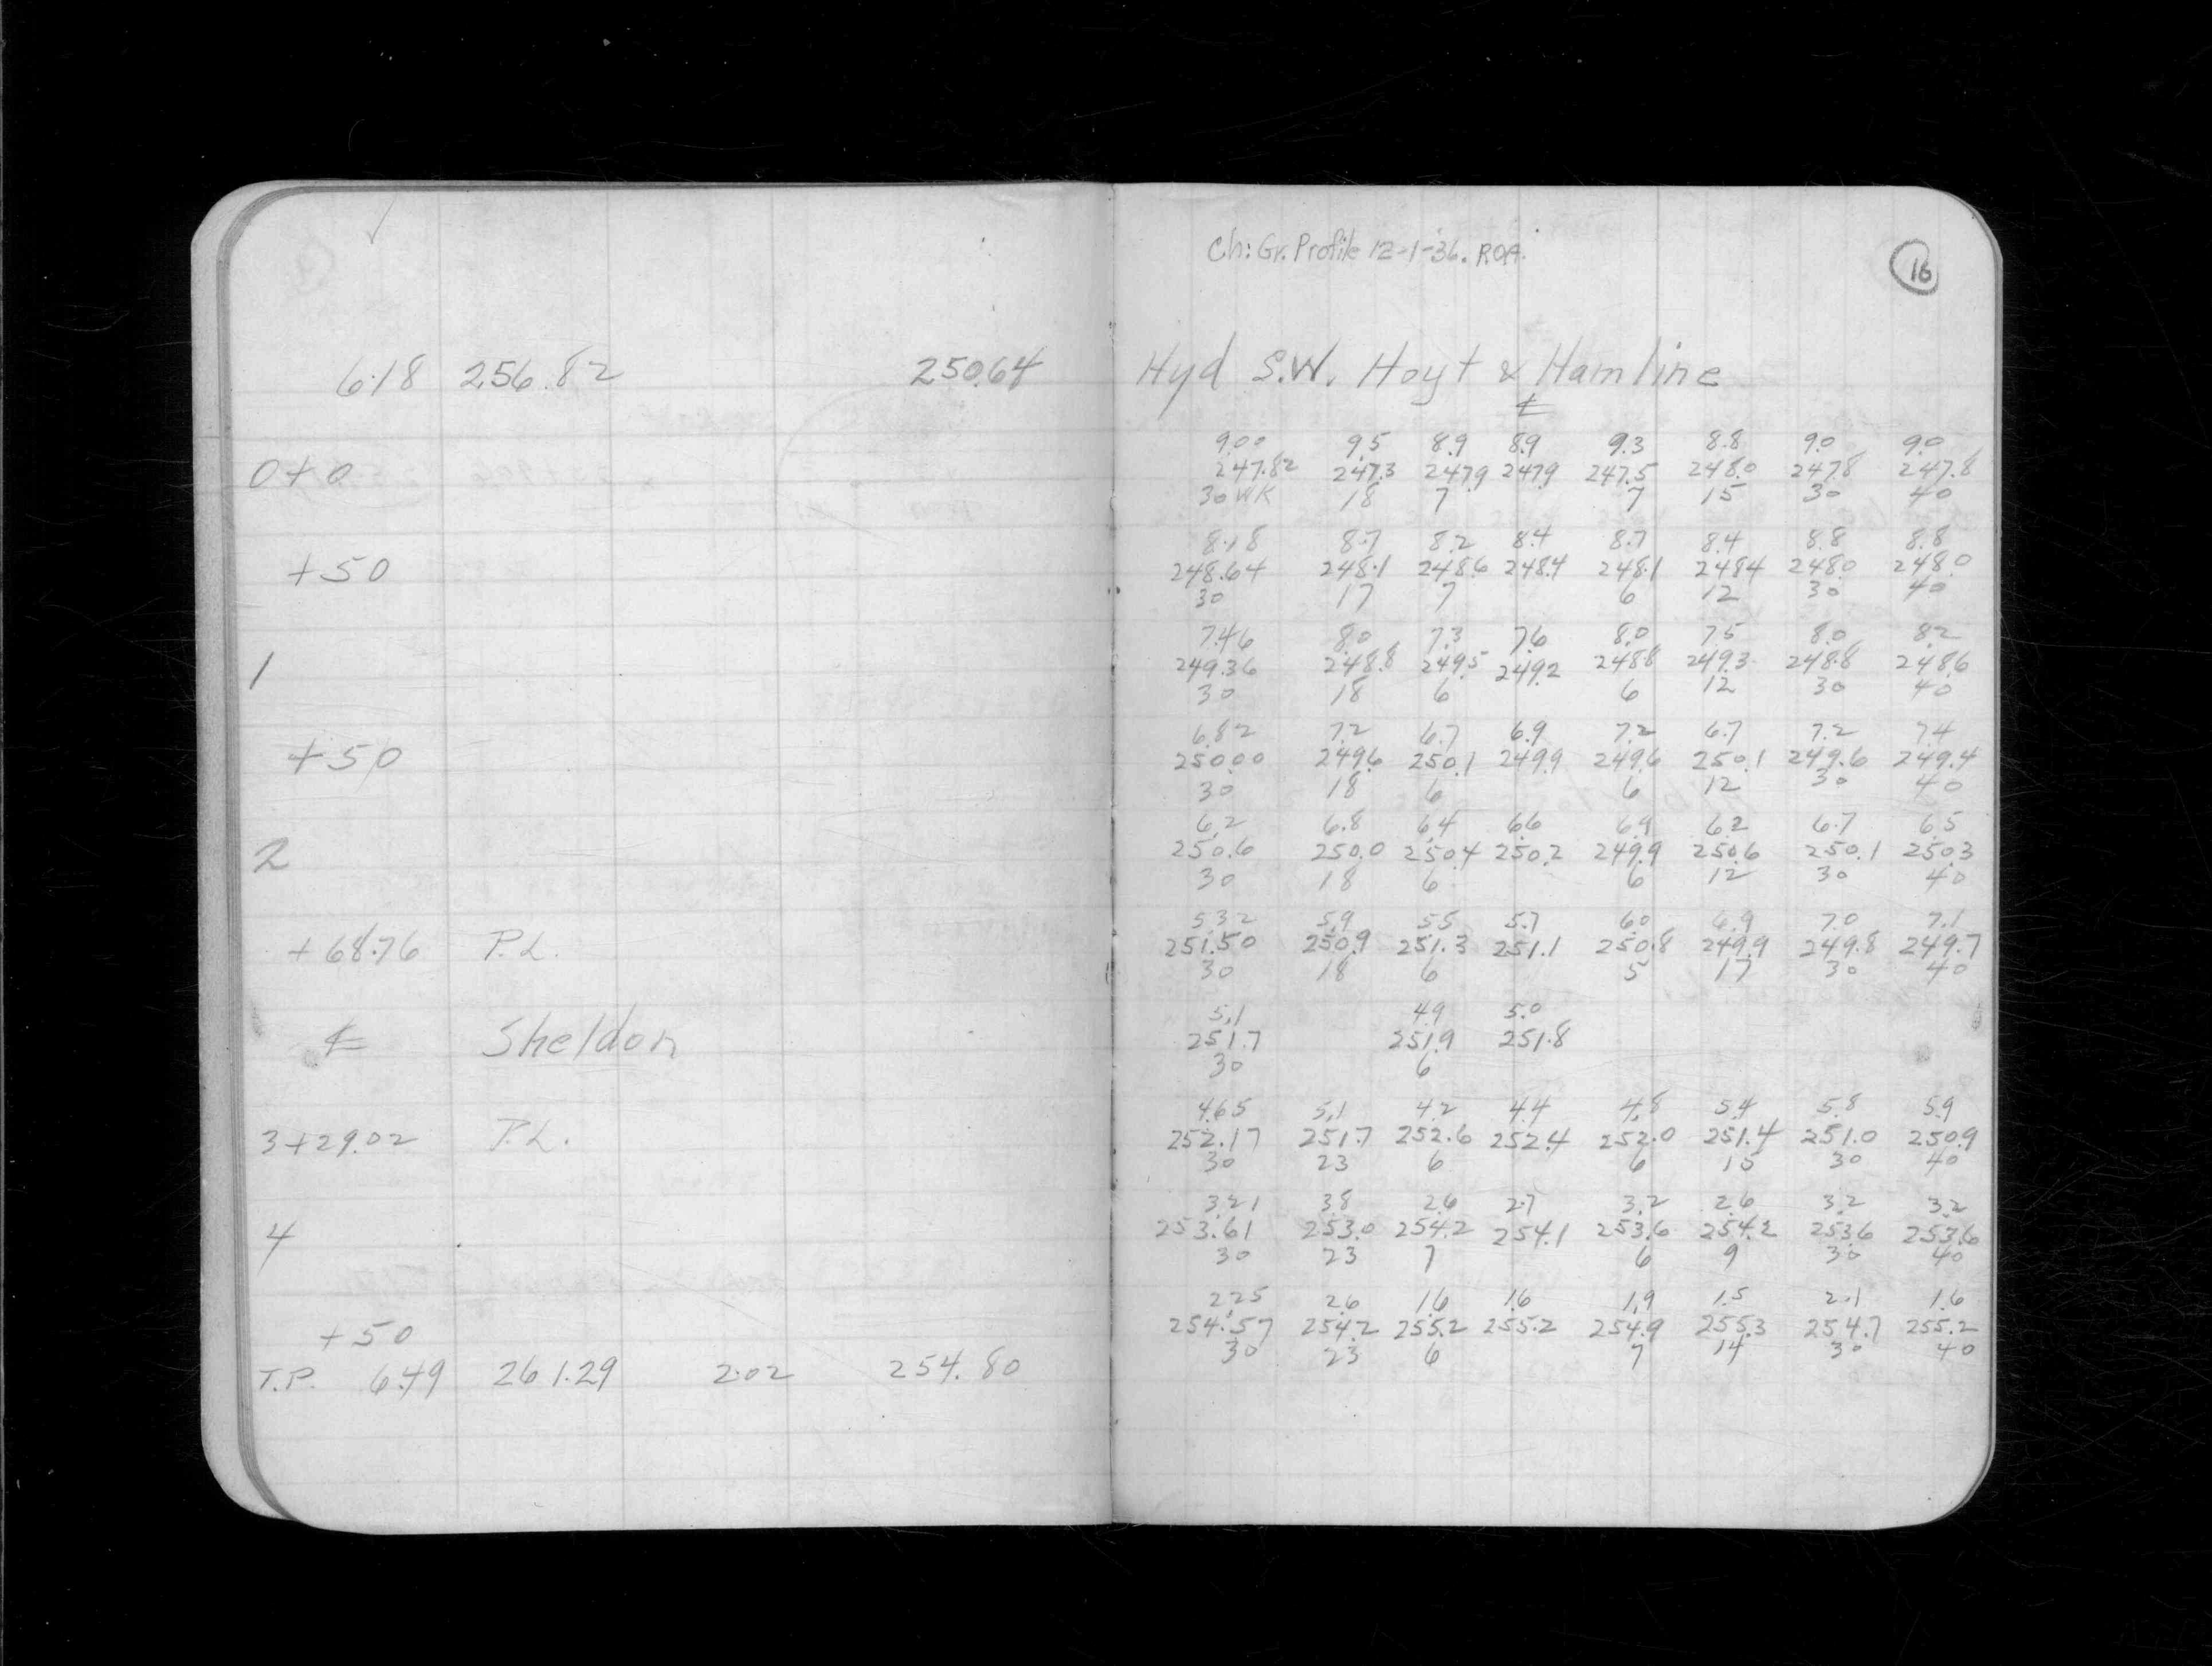 Ch: Gr. Profile 12-1-36. ROA.
16
6.18 256.82 250.64 Hyd S.W. Hoyt & Hamline
℄
9.00 9.5 8.9 8.9 9.3 8.8 9.0 9.0
0+0 247.82 247.3 247.9 247.9 247.5 248.0 247.8 247.8
30 WK 18 7 7 15 30 40
8.18 8.7 8.2 8.4 8.7 8.4 8.8 8.8
+50 248.64 248.1 248.6 248.4 248.1 248.4 248.0 248.0
30 17 7 6 12 30 40
7.46 8.0 7.3 7.6 8.0 7.5 8.0 8.2
1 249.36 248.8 249.5 249.2 248.8 249.3 248.8 248.6
30 18 6 6 12 30 40
6.82 7.2 6.7 6.9 7.2 6.7 7.2 7.4
+50 250.00 249.6 250.1 249.9 249.6 250.1 249.6 249.4
30 18 6 6 12 30 40
6.2 6.8 6.4 6.6 6.9 6.2 6.7 6.5
2 250.6 250.0 250.4 250.2 249.9 250.6 250.1 250.3
30 18 6 6 12 30 40
5.32 5.9 5.5 5.7 6.0 6.9 7.0 7.1
+68.76 P.L. 251.50 250.9 251.3 251.1 250.8 249.9 249.8 249.7
30 18 6 5 17 30 40
5.1 4.9 5.0
℄ Sheldon 251.7 251.9 251.8
30 6
4.65 5.1 4.2 4.4 4.8 5.4 5.8 5.9
3+29.02 P.L. 252.17 251.7 252.6 252.4 252.0 251.4 251.0 250.9
30 23 6 6 15 30 40
3.21 3.8 2.6 2.7 3.2 2.6 3.2 3.2
4 253.61 253.0 254.2 254.1 253.6 254.2 253.6 253.6
30 23 7 6 9 30 40
2.25 2.6 1.6 1.6 1.9 1.5 2.1 1.6
+50 254.57 254.2 255.2 255.2 254.9 255.3 254.7 255.2
30 23 6 7 14 30 40
T.P. 6.49 261.29 2.02 254.80